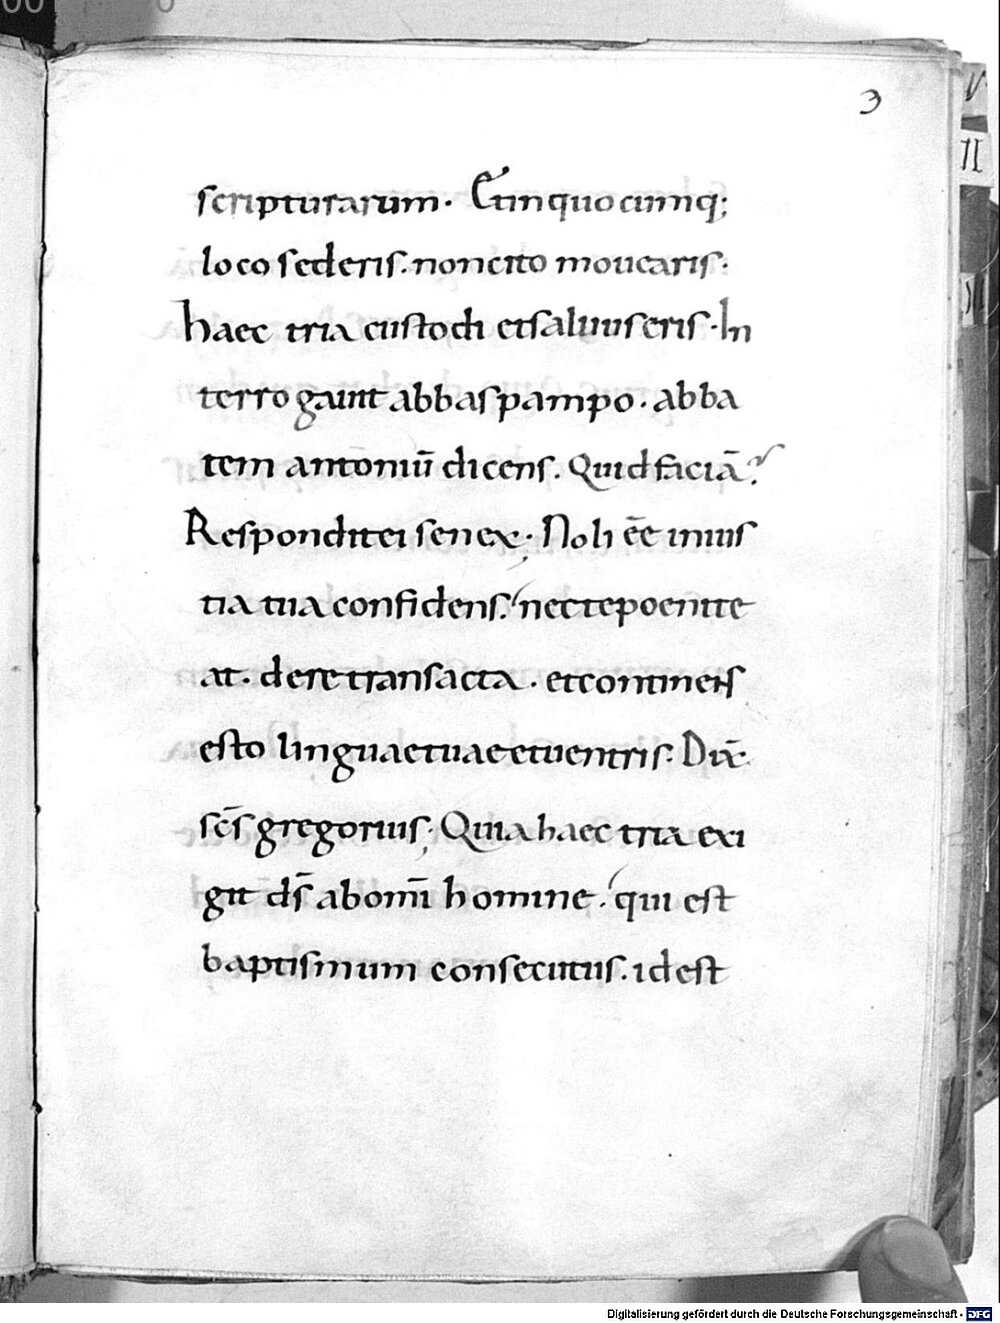 3
scripturarum. Et in quocumq;
loco sederis. non cito movearis.
haec tria custodi et salvus eris. In
terrogavit abbas pampo. abba
tem antoniū dicens. Quid faciā?
Respondit ei senex; Noli ēe in ius
titia tua confidens. nec te poenite
at. de re transacta. et continens
esto linguae tuae et ventris. Dix̄.
sc̄s gregorius; Quia haec tria exi
git ds̄ ab omī homine. qui est
baptismum consecutus. id est
V
II
Digitalisierung gefördert durch die Deutsche Forschungsgemeinschaft - DFG